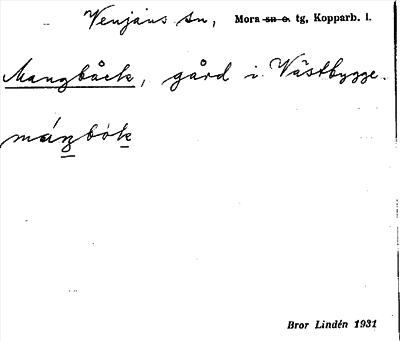 Venjans sn, Mora sn o. tg, Kopparb. l.
Mangbåck, gård i Västbygge.
mánbòk
Bror Lindén 1931